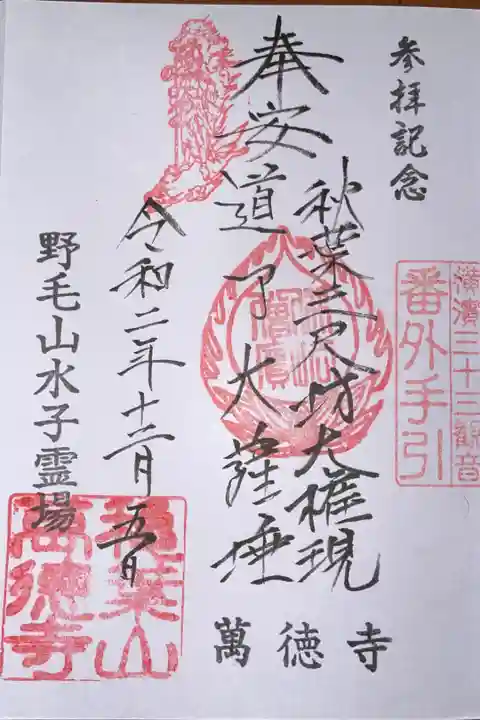 参拝記念
横濱三十三観音
番外手引
秋葉三尺坊大権現
奉安道了大薩埵
令和二年十二月五日
野毛山水子霊場
萬徳寺
秋葉山
萬徳寺